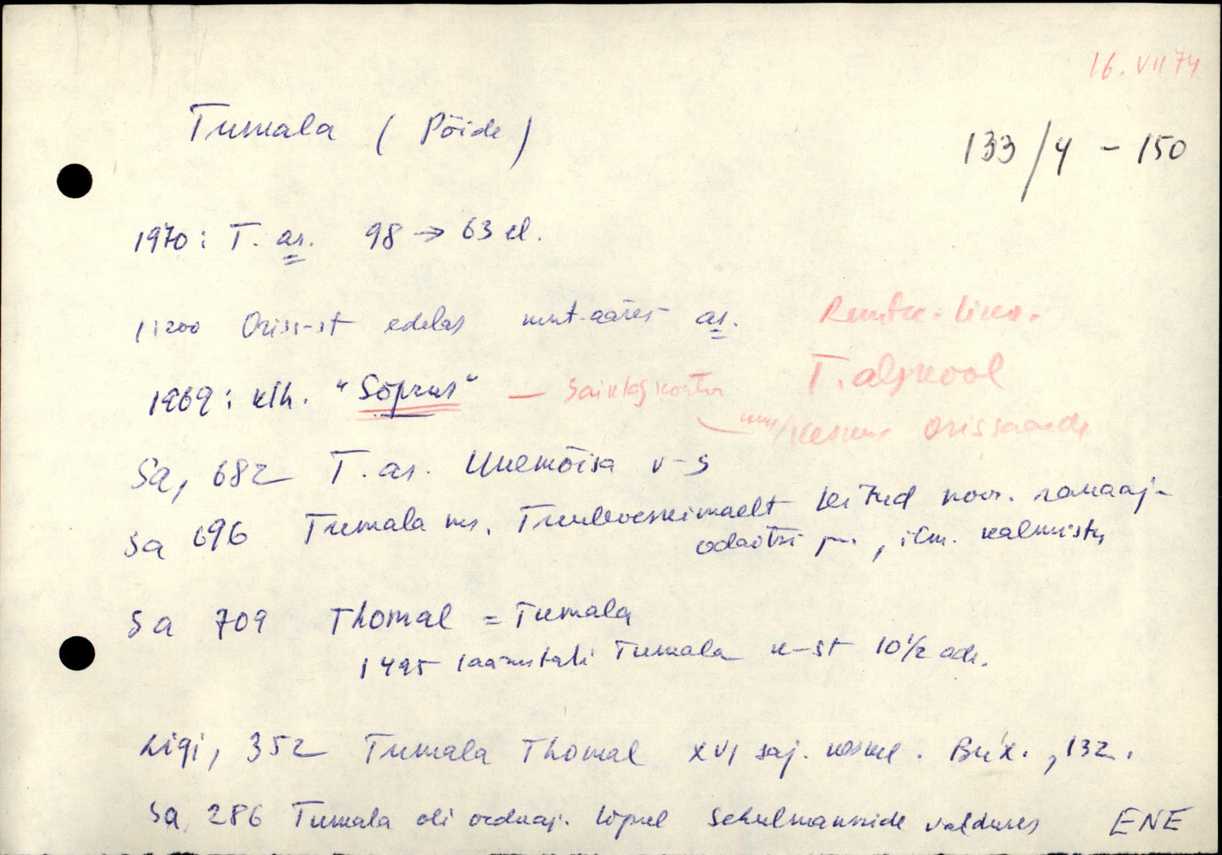 16. VII 74
Tumala (Pöide)
133/4 - 150
1970: T. as. 98 → 63 el.
1:200 Oriss-st edelas as.
1969: klh. "Sõprus" —
T. algkool
keskus Orissaarde
Sa, 682 T. as. Uuemõisa v-s
Sa 696 Tumala ms. leitud noor. rauaaj-
odaotsi , ilm. kalmistu
Sa 709 Thomal = Tumala
1495 läänistati Tumala k-st 10½ adr.
Ligi, 352 Tumala Thomal XVI saj. keskel. Bux., 132.
Sa, 286 Tumala oli orduaj. lõpul Schulmannide valduses ENE